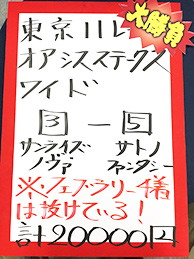 大勝負
東京11R
オアシスステークス
ワイド
3 — 5
サンライズ サトノ
ノヴァ ファンタシー
※フェブラリー様
は抜けている!
計20000円